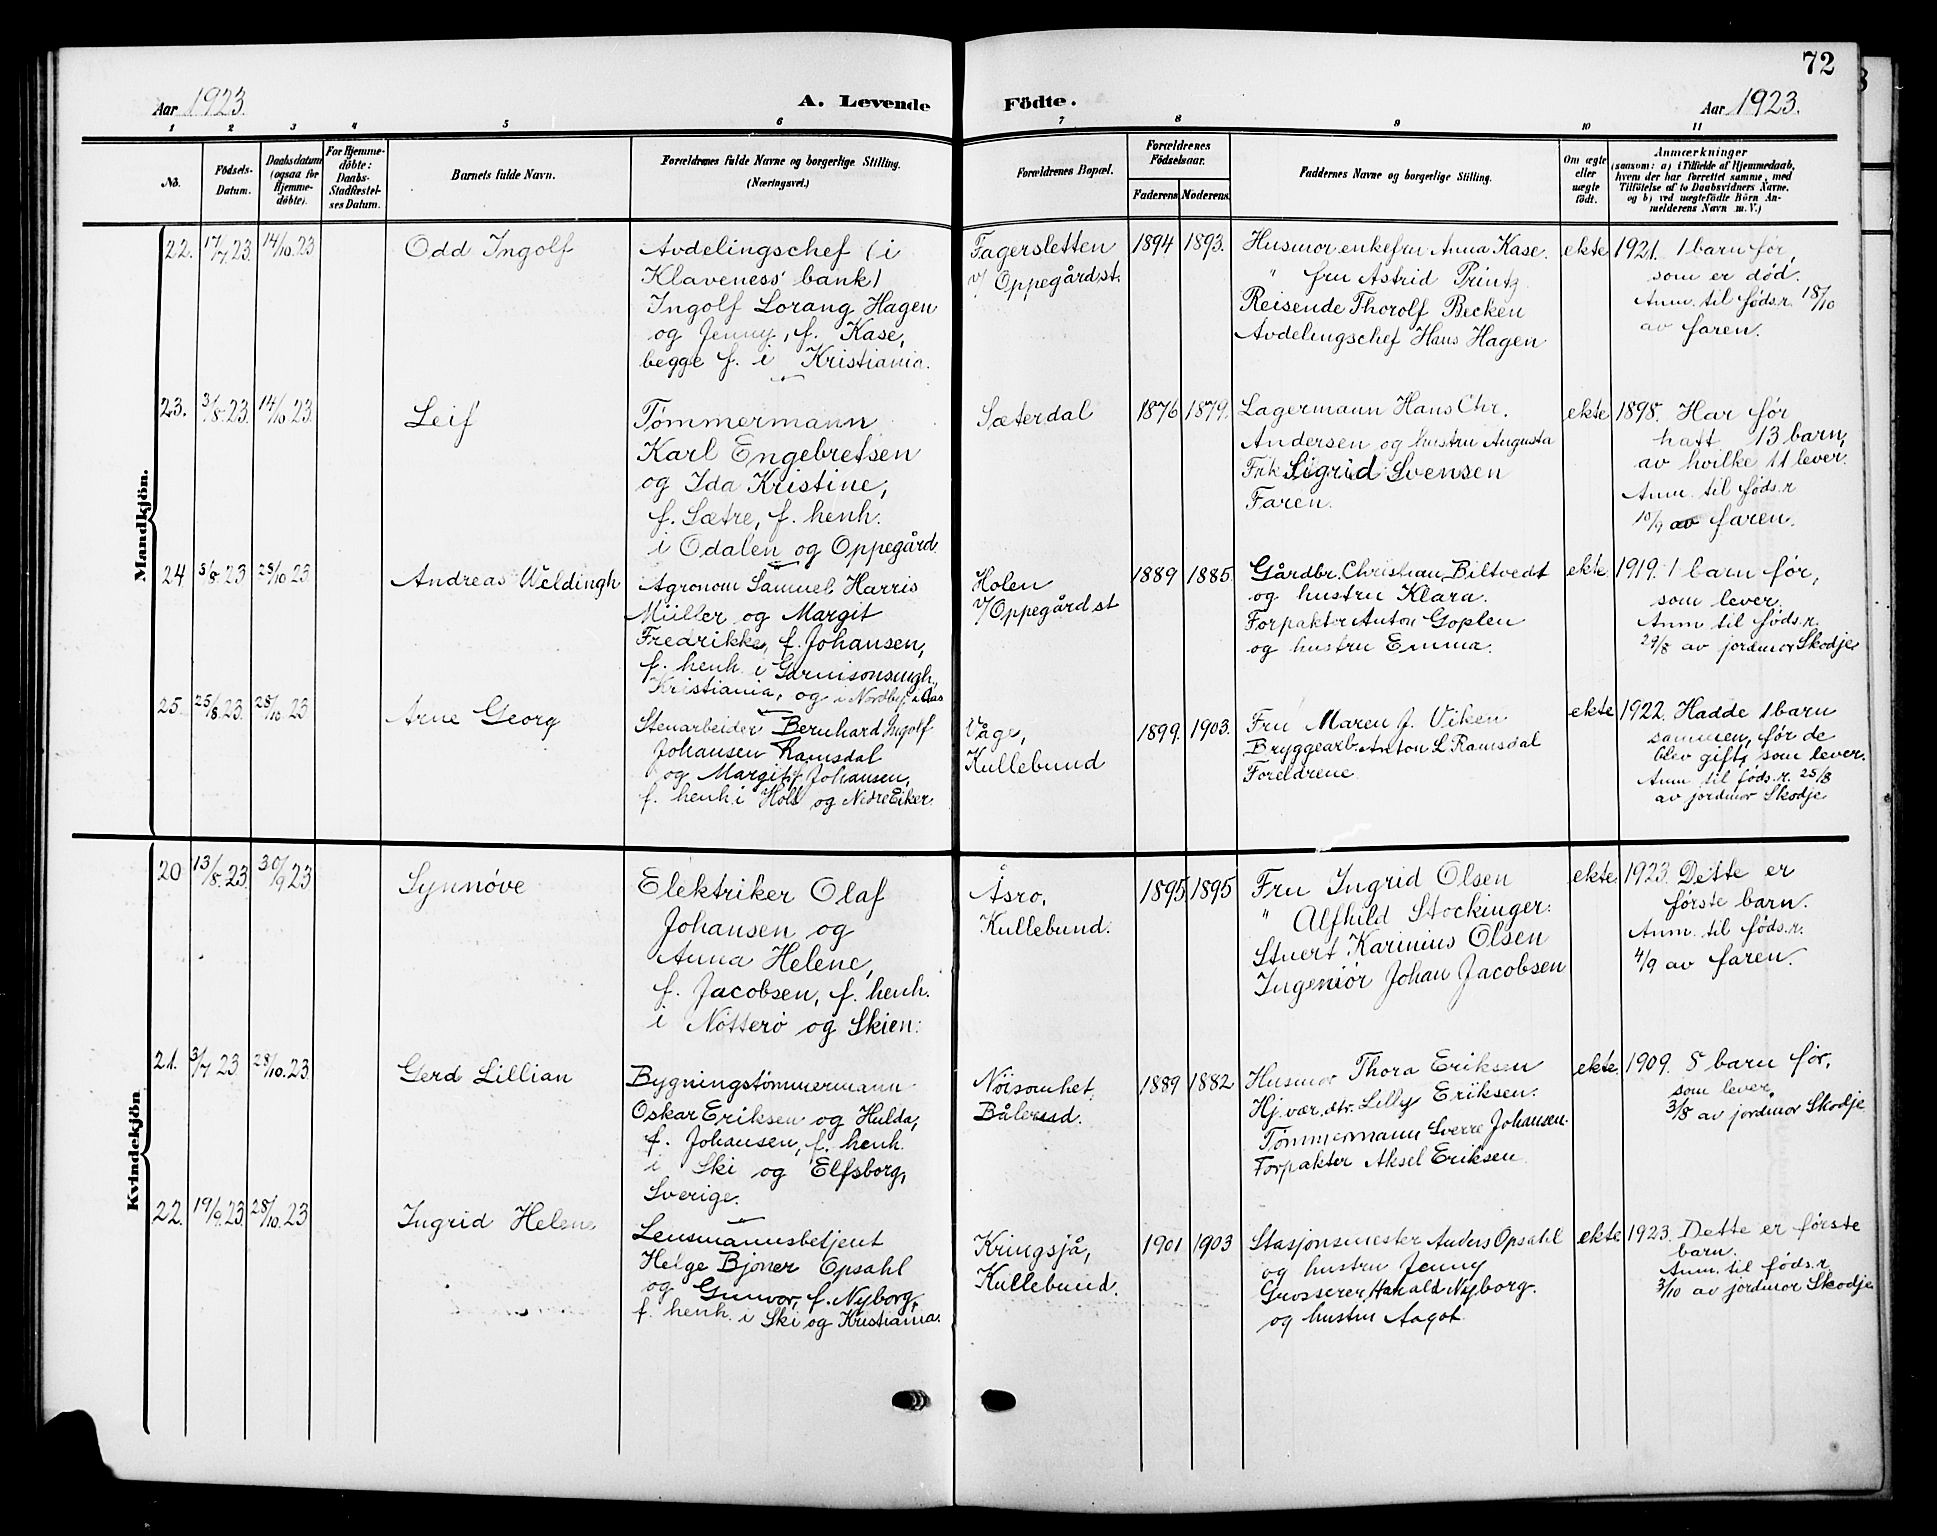 72
Aar 1923.
A. Levende Födte.
Aar 1923.
1 2 3 4 5 6 7 8 9 10 11
No.
Födsels-
Datum.
Daabsdatum
(ogsaa for
Hjemme-
döbte).
For Hjemme-
döbte:
Daabs-
Stadfæstel-
ses Datum.
Barnets fulde Navn.
Forældrenes fulde Navne og borgerlige Stilling.
(Næringsvei.)
Forældrenes Bopæl.
Forældrenes
Födselsaar.
Faderens Moderens
Faddernes Navne og borgerlige Stilling.
Om ægte
eller
uægte
født.
Anmærkninger
(saasom: a) i Tilfælde af Hjemmedaab,
hvem der har forrettet samme, med
Tilföielse af to Daabsvidners Navne,
og b) ved uægtefödte Börn An-
melderens Navn m. V.)
Mandkjön.
22. 17/7 23. 14/10 23
Odd Ingolf
Avdelingschef (i
Klaveness' bank)
Ingolf Lorang Hagen
og Jenny, f. Kase,
begge f. i Kristiania.
Fagersletten
v/ Oppegård st.
1894 1893.
Husmor enkefru Anna Kase.
" fru Astrid Printz
Reisende Thorolf Becken
Avdelingschef Hans Hagen
ekte
1921. 1 barn før,
som er død.
Anm. til føds.r. 18/10
av faren.
23. 3/8 23. 14/10 23
Leif
Tømmermann
Karl Engebretsen
og Ida Kristine,
f. Sætre, f. henh.
i Odalen og Oppegård
Sæterdal
1876 1879.
Lagermann Hans Chr.
Andersen og hustru Augusta
Frk Sigrid Svensen
Faren.
ekte
1898. Har før
hatt 13 barn,
av hvilke 11 lever.
Anm. til føds.r
10/9 av faren.
24 3/8 23 28/10 23
Andreas Weldingh
Agronom Samuel Harris
Müller og Margit
Fredrikke, f. Johansen,
f. henh. i Garnisonsmgh,
Kristiania, og i Nordby i Aas
Holen
v/ Oppegård st
1889 1885.
Gårdbr. Christian Biltvedt
og hustru Klara.
Forpakter Anton Goplen
og hustru Emma.
ekte
1919. 1 barn før,
som lever.
Anm til føds.r.
29/8 av jordmor Skodje
25. 25/8 23. 28/10 23
Arne Georg
Stenarbeider Bernhard Ingolf
Johansen Ramsdal
og Margit f. Johansen,
f. henh. i Holt og Nedre Eiker.
Våge,
Kullebund
1899. 1903.
Fru Maren J. Viken
Bryggearb. Anton L Ramsdal
Foreldrene
ekte
1922. Hadde 1 barn
sammen, før de
blev gift, som lever.
Anm til føds.r. 25/8
av jordmor Skodje
Kvindekjön
20 13/8 23. 30/9 23
Synnøve
Elektriker Olaf
Johansen og
Anna Helene,
f. Jacobsen, f. henh.
i Nøtterø og Skien.
Åsro,
Kullebund.
1895 1895
Fru Ingrid Olsen
" Alfhild Stockinger.
Stuert Karinius Olsen
Ingeniør Johan Jacobsen
ekte
1923. Dette er
første barn.
Anm. til føds.r.
4/9 av faren.
21. 3/7 23 28/10 23
Gerd Lillian
Bygningstømmermann
Oskar Eriksen og Hulda,
f. Johansen, f. henh
i Ski og Elfsborg,
Sverige.
Nøisomhet,
Bålerud.
1889 1882
Husmor Thora Eriksen
Hj.vær. dtr. Lilly Eriksen.
Tømmermann Sverre Johansen.
Forpakter Aksel Eriksen
ekte
1909. 5 barn før,
som lever.
3/8 av jordmor Skodje
22. 19/9 23. 28/10 23
Ingrid Helene
Lensmannsbetjent
Helge Bjøner Opsahl
og Gunvor, f. Nyborg,
f. henh. i Ski og Kristiania.
Kringsjå,
Kullebund.
1901 1903
Stasjonsmester Anders Opsahl
og hustru Jenny
Grosserer Harald Nyborg.
og hustru Aagot
ekte
1923. Dette er første
barn.
Anm. til føds.r
3/10 av jordmor Skodje